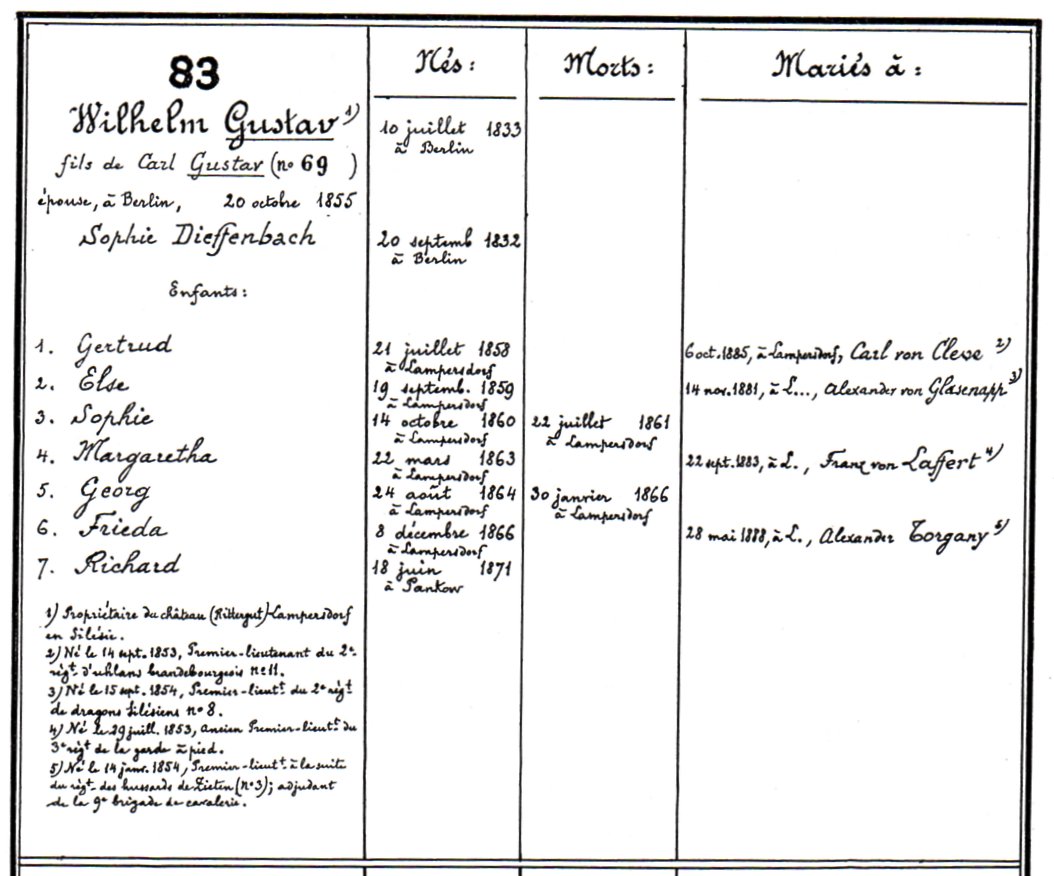 83
Nés :
Morts :
Mariés à :
Wilhelm Gustav 1)
10 juillet 1833
à Berlin
fils de Carl Gustav (no 69 )
épouse, à Berlin, 20 octobre 1855
Sophie Dieffenbach
20 septemb 1832
à Berlin
Enfants :
1. Gertrud
21 juillet 1858
à Lampersdorf
6 oct. 1885, à Lampersdorf, Carl von Cleve 2)
2. Else
19 septemb. 1859
à Lampersdorf
14 nov. 1881, à L..., Alexander von Glasenapp 3)
3. Sophie
14 octobre 1860
à Lampersdorf
22 juillet 1861
à Lampersdorf
4. Margaretha
22 mars 1863
à Lampersdorf
22 sept. 1883, à L., Franz von Laffert 4)
5. Georg
24 août 1864
à Lampersdorf
30 janvier 1866
à Lampersdorf
6. Frieda
8 décembre 1866
à Lampersdorf
28 mai 1888, à L., Alexander Torgany 5)
7. Richard
18 juin 1871
à Pankow
1) Propriétaire du château (Rittergut) Lampersdorf
en Silésie.
2) Né le 14 sept. 1853, Premier-lieutenant du 2e
régt. d'uhlans brandebourgeois no 11.
3) Né le 15 sept. 1854, Premier-lieutt. du 2e régt.
de dragons silésiens no 8.
4) Né le 29 juill. 1853, ancien Premier-lieutt. du
3e régt de la garde à pied.
5) Né le 14 janv. 1854, Premier-lieutt. à la suite
du régt. des hussards de Zieten (no 3); adjudant
de la 9e brigade de cavalerie.